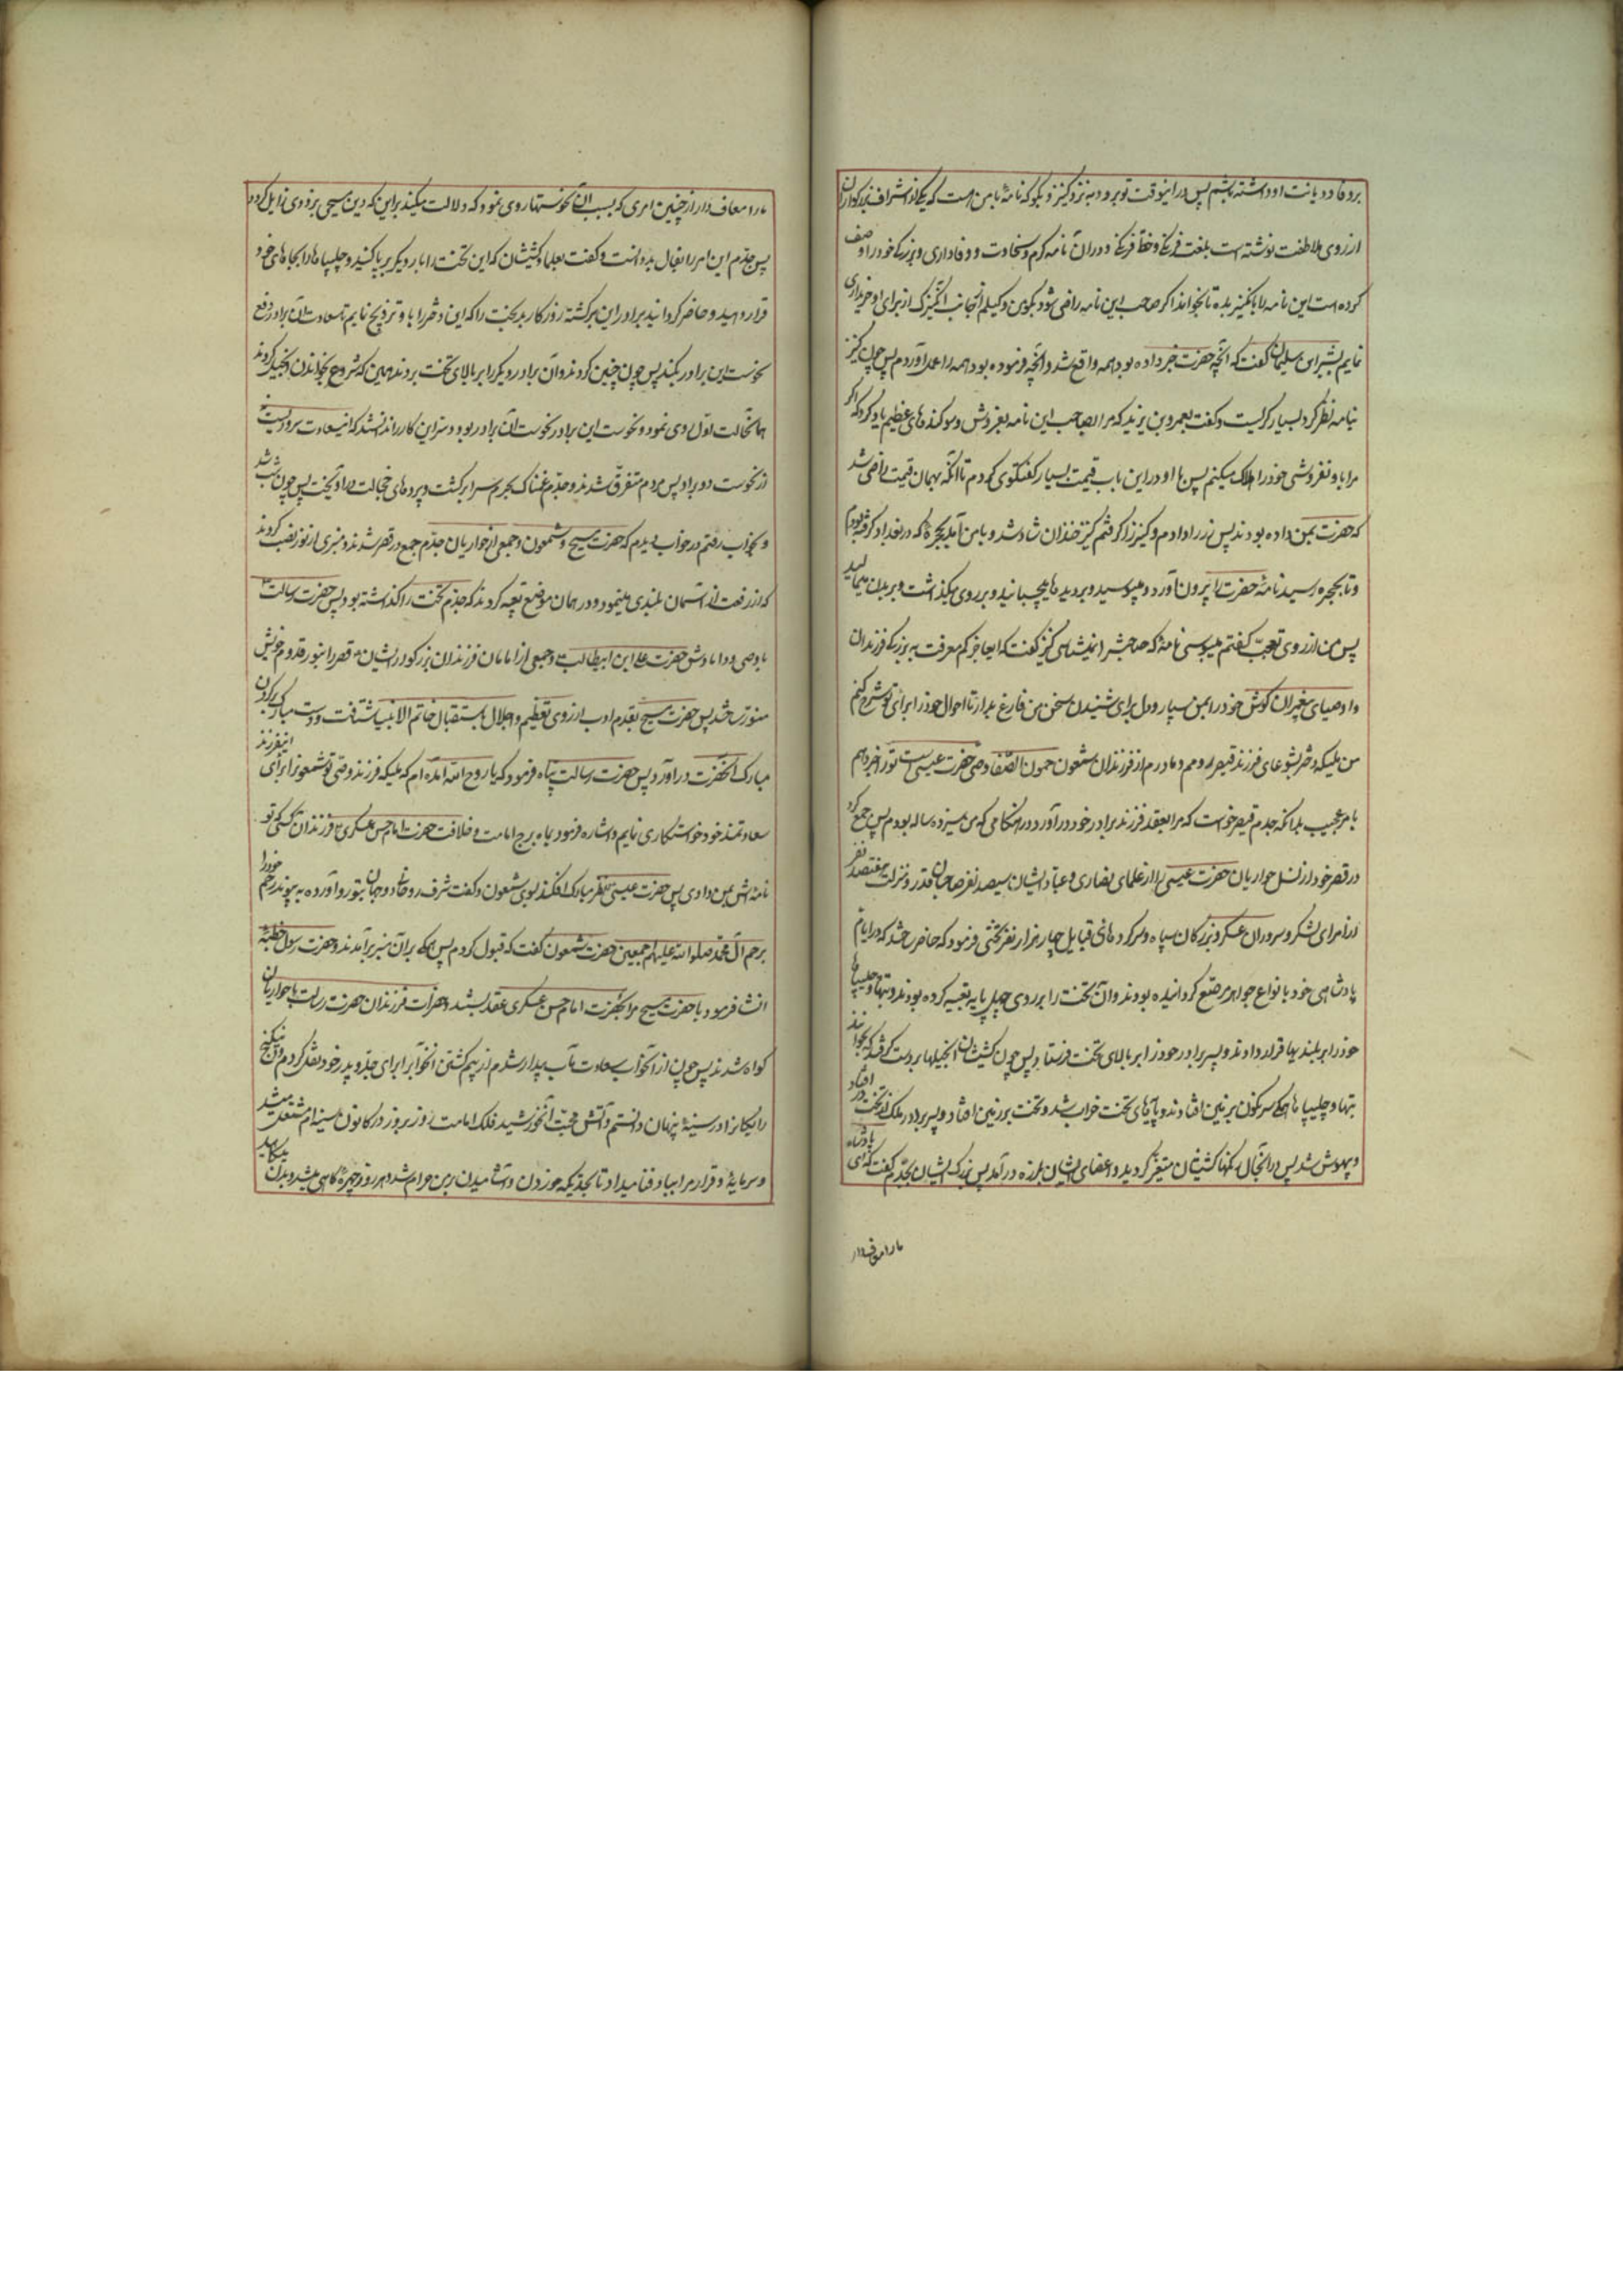 بر وفا و دیانت او داشته باشم پس در اینوقت تو برو به نزد کنیز و بگو که نامهٔ با من است که یکی از اشراف بزرگواران
از روی ملاطفت نوشته است بلغت فرنگی و خط فرنگی و در آن نامه کرم و سخاوت و وفاداری و بزرگی خود را وصف
کرده است این نامه را بآن کنیز بده تا بخواند اگر صاحب این نامه راضی شود بگو من وکیلم از جانب او که این کنیزک از برای او خریداری
نمایم بشر ابن سلیمان گفت که آنچه حضرت خبر داده بود همه واقع شد و آنچه فرموده بود همه را بعمل آوردم پس چون کنیز
بنامه نظر کرد بسیار گریست و گفت بعمرو بن یزید که مرا بصاحب این نامه بفروش و سوگندهای عظیم یاد کرد که اگر
مرا باو نفروشی خود را هلاک میکنم پس با او در این باب قیمت بسیار گفتگوی کردم تا آنکه بهمان قیمت راضی شد
که حضرت بمن داده بودند پس زر را دادم و کنیز را گرفتم کنیز خندان شاد شد و با من آمد بحجرهٔ که در بغداد گرفته بودم
و تا بحجره رسید نامهٔ حضرت را بیرون آورد و میبوسید و بر دیده ها میچسبانید و بر روی میگذاشت و بر بدن میمالید
پس من از روی تعجب گفتم میبوسی نامهٔ که صاحبش را نمیشناسی کنیز گفت که ای عاجز کم معرفت به بزرگی فرزندان
و اوصیای پیغمبران گوش خود را بمن سپار و دل برای شنیدن سخن من فارغ بدار تا احوال خود را برای تو شرح کنم
من ملیکه دختر یشوعای فرزند قیصر رومم و مادرم از فرزندان شمعون حمون الصفا وصی حضرت عیسی است تو را خبر دهم
بامر عجیب بدانکه جدم قیصر خواست که مرا بعقد فرزند برادر خود در آورد در هنگامی که من سیزده ساله بودم پس جمع کرد
در قصر خود از نسل حواریان حضرت عیسی را از علمای نصاری و عباد ایشان سیصد نفر و صاحبان قدر و منزلت هفتصد نفر
و از امرای لشگر و سروران عسکر و بزرگان سپاه و سرکرده های قبایل چهار هزار نفر تختی فرمود که حاضر ساختند که در ایام
پادشاهی خود بانواع جواهر مرصع گردانیده بودند و آن تخت را بر روی چهل پایه تعبیه کرده بودند و بتها و چلیپاها
خود را بر بلندیها قرار دادند و پسر برادر خود را بر بالای تخت فرستاد پس چون کشیشان انجیلها بر دست گرفتند که بخوانند
بتها و چلیپا ها همگی سرنگون بر زمین افتادند و پایهای تخت خراب شد و تخت بر زمین افتاد و پسر برادر ملک از تخت در افتاد
و بیهوش شد پس در آنحال رنگها کشیشان متغیر گردید و اعضای ایشان بلرزه در آمد پس بزرگ ایشان بجدم گفت که ای پادشاه
ما را معاف دار
ما را معاف دار از چنین امری که بسبب آن نحوستها روی نمود که دلالت میکند بر این که دین مسیحی بزودی زایل گردد
پس جدم این امر را بفال بد دانست و گفت بعلما و کشیشان که این تخت را بار دیگر بر پا کنید و چلیپاها را بجاهای خود
قرار دهید و حاضر گردانید برادر این برگشته روزگار بدبخت را که این دختر را باو تزویج نمایم تا سعادت آن برادر دفع
نحوست این برادر بکند پس چون چنین کردند و آن برادر دیگر را بر بالای تخت بردند همین که شروع بخواندن انجیل کردند
همان حالت اول روی نمود و نحوست این برادر و نحوست آن برادر بود و سر این کار را ندانستند که از سعادت سروریست نه
از نحوست دو برادر پس مردم متفرق شدند و جدم غمناک بحرم سرا برگشت و پرده های خجالت در آویخت پس چون شب شد
و بخواب رفتم در خواب دیدم که حضرت مسیح و شمعون و جمعی از حواریان در قصر جدم جمع شدند و منبری از نور نصب کردند
که از رفعت از آسمان بلندی مینمود و در همان موضع تعبیه کردند که جدم تخت را گذاشته بود پس حضرت رسالت
با وصی و دامادش حضرت علی ابن ابیطالب و جمعی از امامان فرزندان بزرگوار ایشان قصر را بنور قدوم خویش
منور ساختند پس حضرت مسیح بقدم ادب از روی تعظیم و اجلال باستقبال خاتم الانبیا شتافت و دست مبارک بر گردن
مبارک آنحضرت در آورد پس حضرت رسالت پناه فرمود که یا روح الله آمده ام که ملیکه فرزند وصی تو شمعون را برای این فرزند
سعادتمند خود خواستگاری نمایم و اشاره فرمود بماه برج امامت و خلافت حضرت امام حسن عسکری فرزند آن کسی که تو
نامه اش بمن دادی پس حضرت عیسی نظر مبارک افکند بسوی شمعون و گفت شرف دو جهان بتو رو آورده پیوند رحم خود را
برحم آل محمد صلوات الله علیهم اجمعین حضرت شمعون گفت که قبول کردم پس همگی بر آن منبر بر آمدند و حضرت رسول خطبهٔ
انشا فرمود با حضرت مسیح مرا بحضرت امام حسن عسکری عقد بستند و حضرات فرزندان حضرت رسالت با حواریان
گواه شدند پس چون از آنخواب سعادت مآب بیدار شدم از بیم کشتن آنخواب را برای جد و پدر خود نقل نکردم و آن گنج
رایگان را در سینه پنهان داشتم و آتش محبت آنخورشید فلک امامت روز بروز در کانون سینه ام مشتعل میشد
و سرمایهٔ و قرار مرا بباد فنا میداد تا بحدیکه خوردن و آشامیدن بر من حرام شد و هر روز چهره کاهی میشد و بدن میکاهید